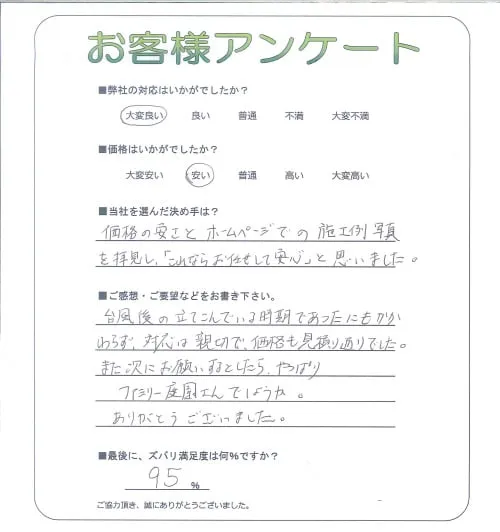 お客様アンケート
■弊社の対応はいかがでしたか?
大変良い 良い 普通 不満 大変不満
■価格はいかがでしたか?
大変安い 安い 普通 高い 大変高い
■当社を選んだ決め手は?
価格の安さと ホームページでの 施工例写真
を拝見し、「これならお任せして安心」と思いました。
■ご感想・ご要望などをお書き下さい。
台風後の立てこんでいる時期であったにもかか
わらず、対応は親切で、価格も見積り通りでした。
また次にお願いするとしたら、やっぱり
ファミリー庭園さんでしょうか。
ありがとうございました。
■最後に、ズバリ満足度は何%ですか?
95 %
ご協力頂き、誠にありがとうございました。